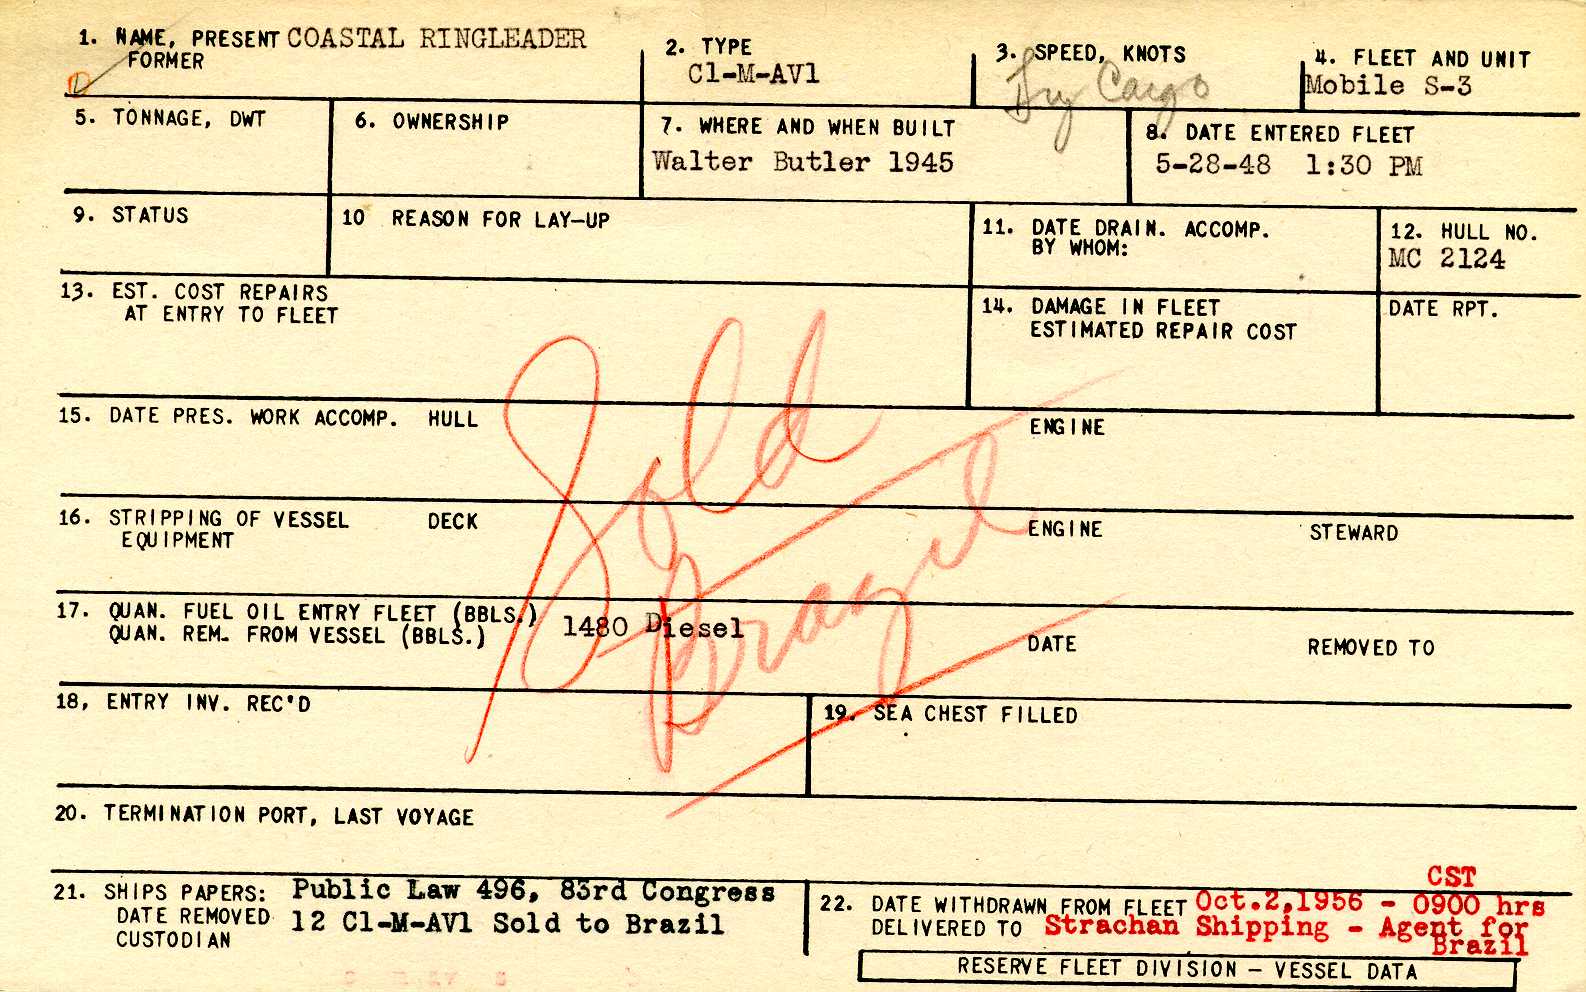 1. NAME, PRESENT COASTAL RINGLEADER
FORMER
D
2. TYPE
C1-M-AV1
3. SPEED, KNOTS
Dry Cargo
4. FLEET AND UNIT
Mobile S-3
5. TONNAGE, DWT
6. OWNERSHIP
7. WHERE AND WHEN BUILT
Walter Butler 1945
8. DATE ENTERED FLEET
5-28-48 1:30 PM
9. STATUS
10 REASON FOR LAY-UP
11. DATE DRAIN. ACCOMP.
BY WHOM:
12. HULL NO.
MC 2124
13. EST. COST REPAIRS
AT ENTRY TO FLEET
14. DAMAGE IN FLEET
ESTIMATED REPAIR COST
DATE RPT.
Sold
Brazil
15. DATE PRES. WORK ACCOMP. HULL
ENGINE
16. STRIPPING OF VESSEL DECK
EQUIPMENT
ENGINE
STEWARD
17. QUAN. FUEL OIL ENTRY FLEET (BBLS.)
QUAN. REM. FROM VESSEL (BBLS.)
1480 Diesel
DATE
REMOVED TO
18, ENTRY INV. REC'D
19. SEA CHEST FILLED
20. TERMINATION PORT, LAST VOYAGE
21. SHIPS PAPERS: Public Law 496, 83rd Congress
DATE REMOVED 12 C1-M-AV1 Sold to Brazil
CUSTODIAN
CST
22. DATE WITHDRAWN FROM FLEET Oct.2,1956 - 0900 hrs
DELIVERED TO Strachan Shipping - Agent for
Brazil
RESERVE FLEET DIVISION – VESSEL DATA